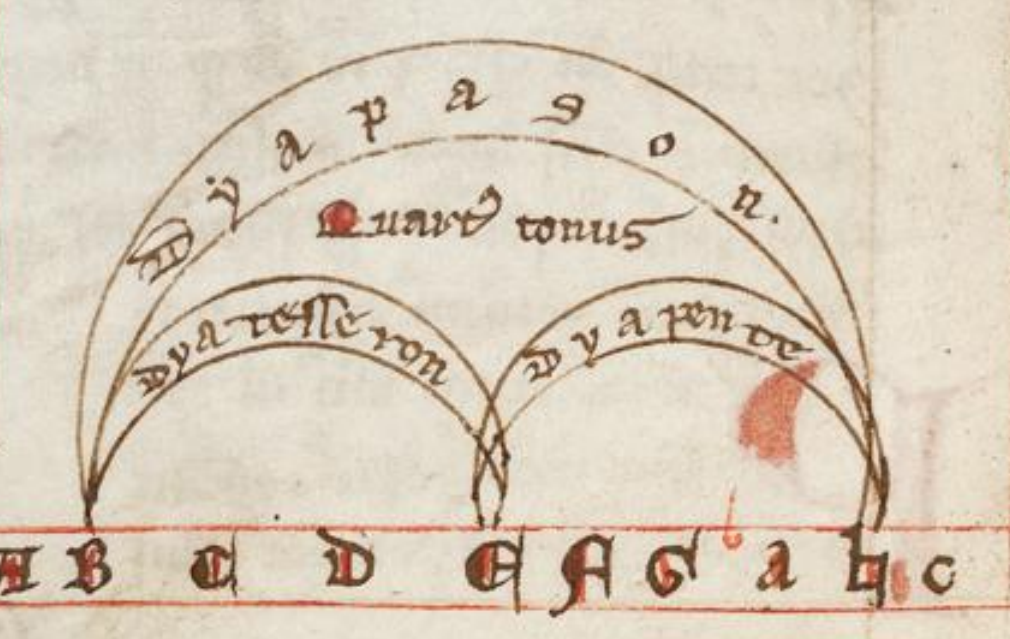 Dyapason.
Quart⁹ tonus
dyatesseron
Dyapente
A B C D E F G a ♮ c